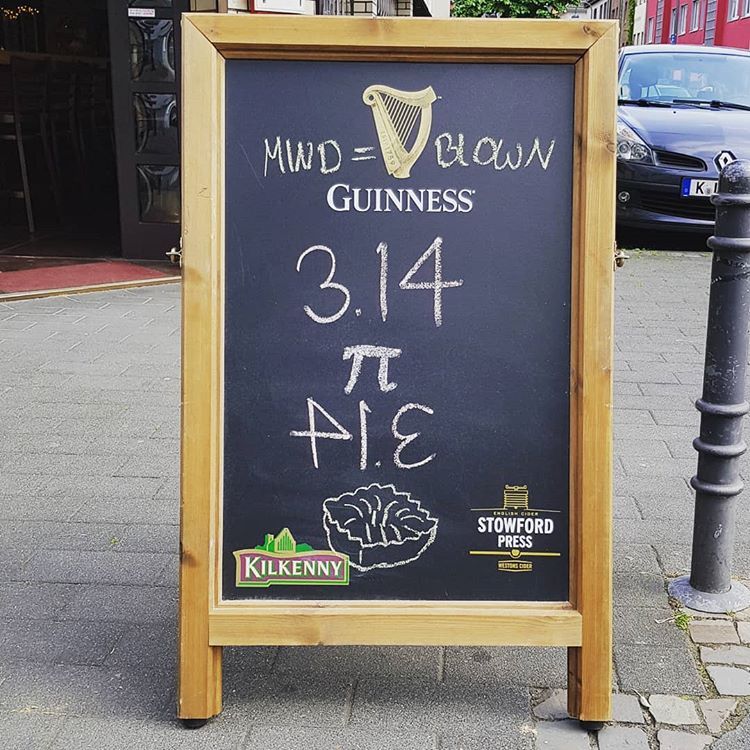 MIND = BLOWN
GUINNESS
3.14
π
41.3
KILKENNY
ENGLISH CIDER
STOWFORD
PRESS
WESTONS CIDER
K